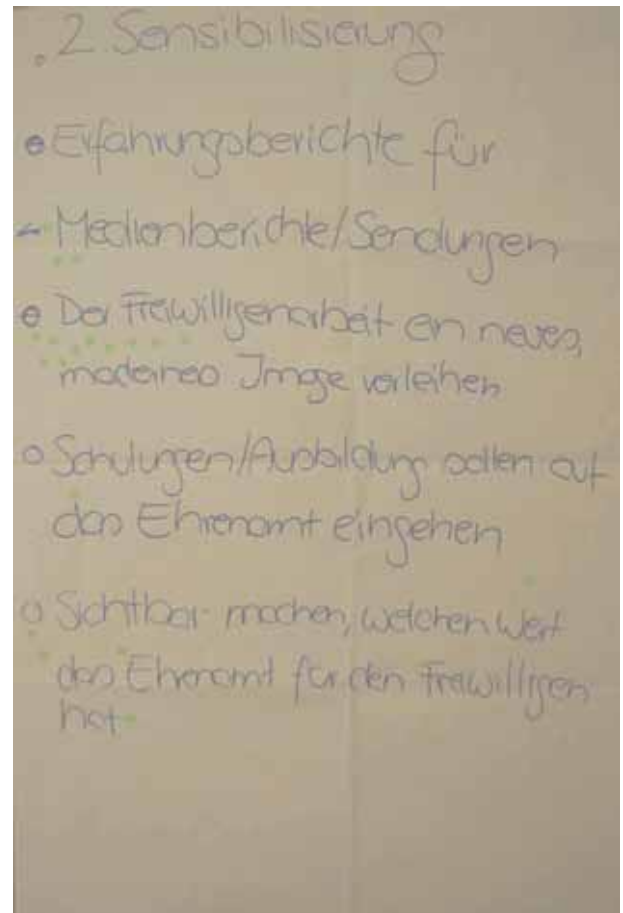 2. Sensibilisierung
• Erfahrungsberichte für
- Medienberichte/Sendungen
• Der Freiwilligenarbeit ein neues,
modernes Image verleihen
• Schulungen/Ausbildung sollen auf
das Ehrenamt eingehen
• Sichtbar machen, welchen Wert
das Ehrenamt für den Freiwilligen
hat